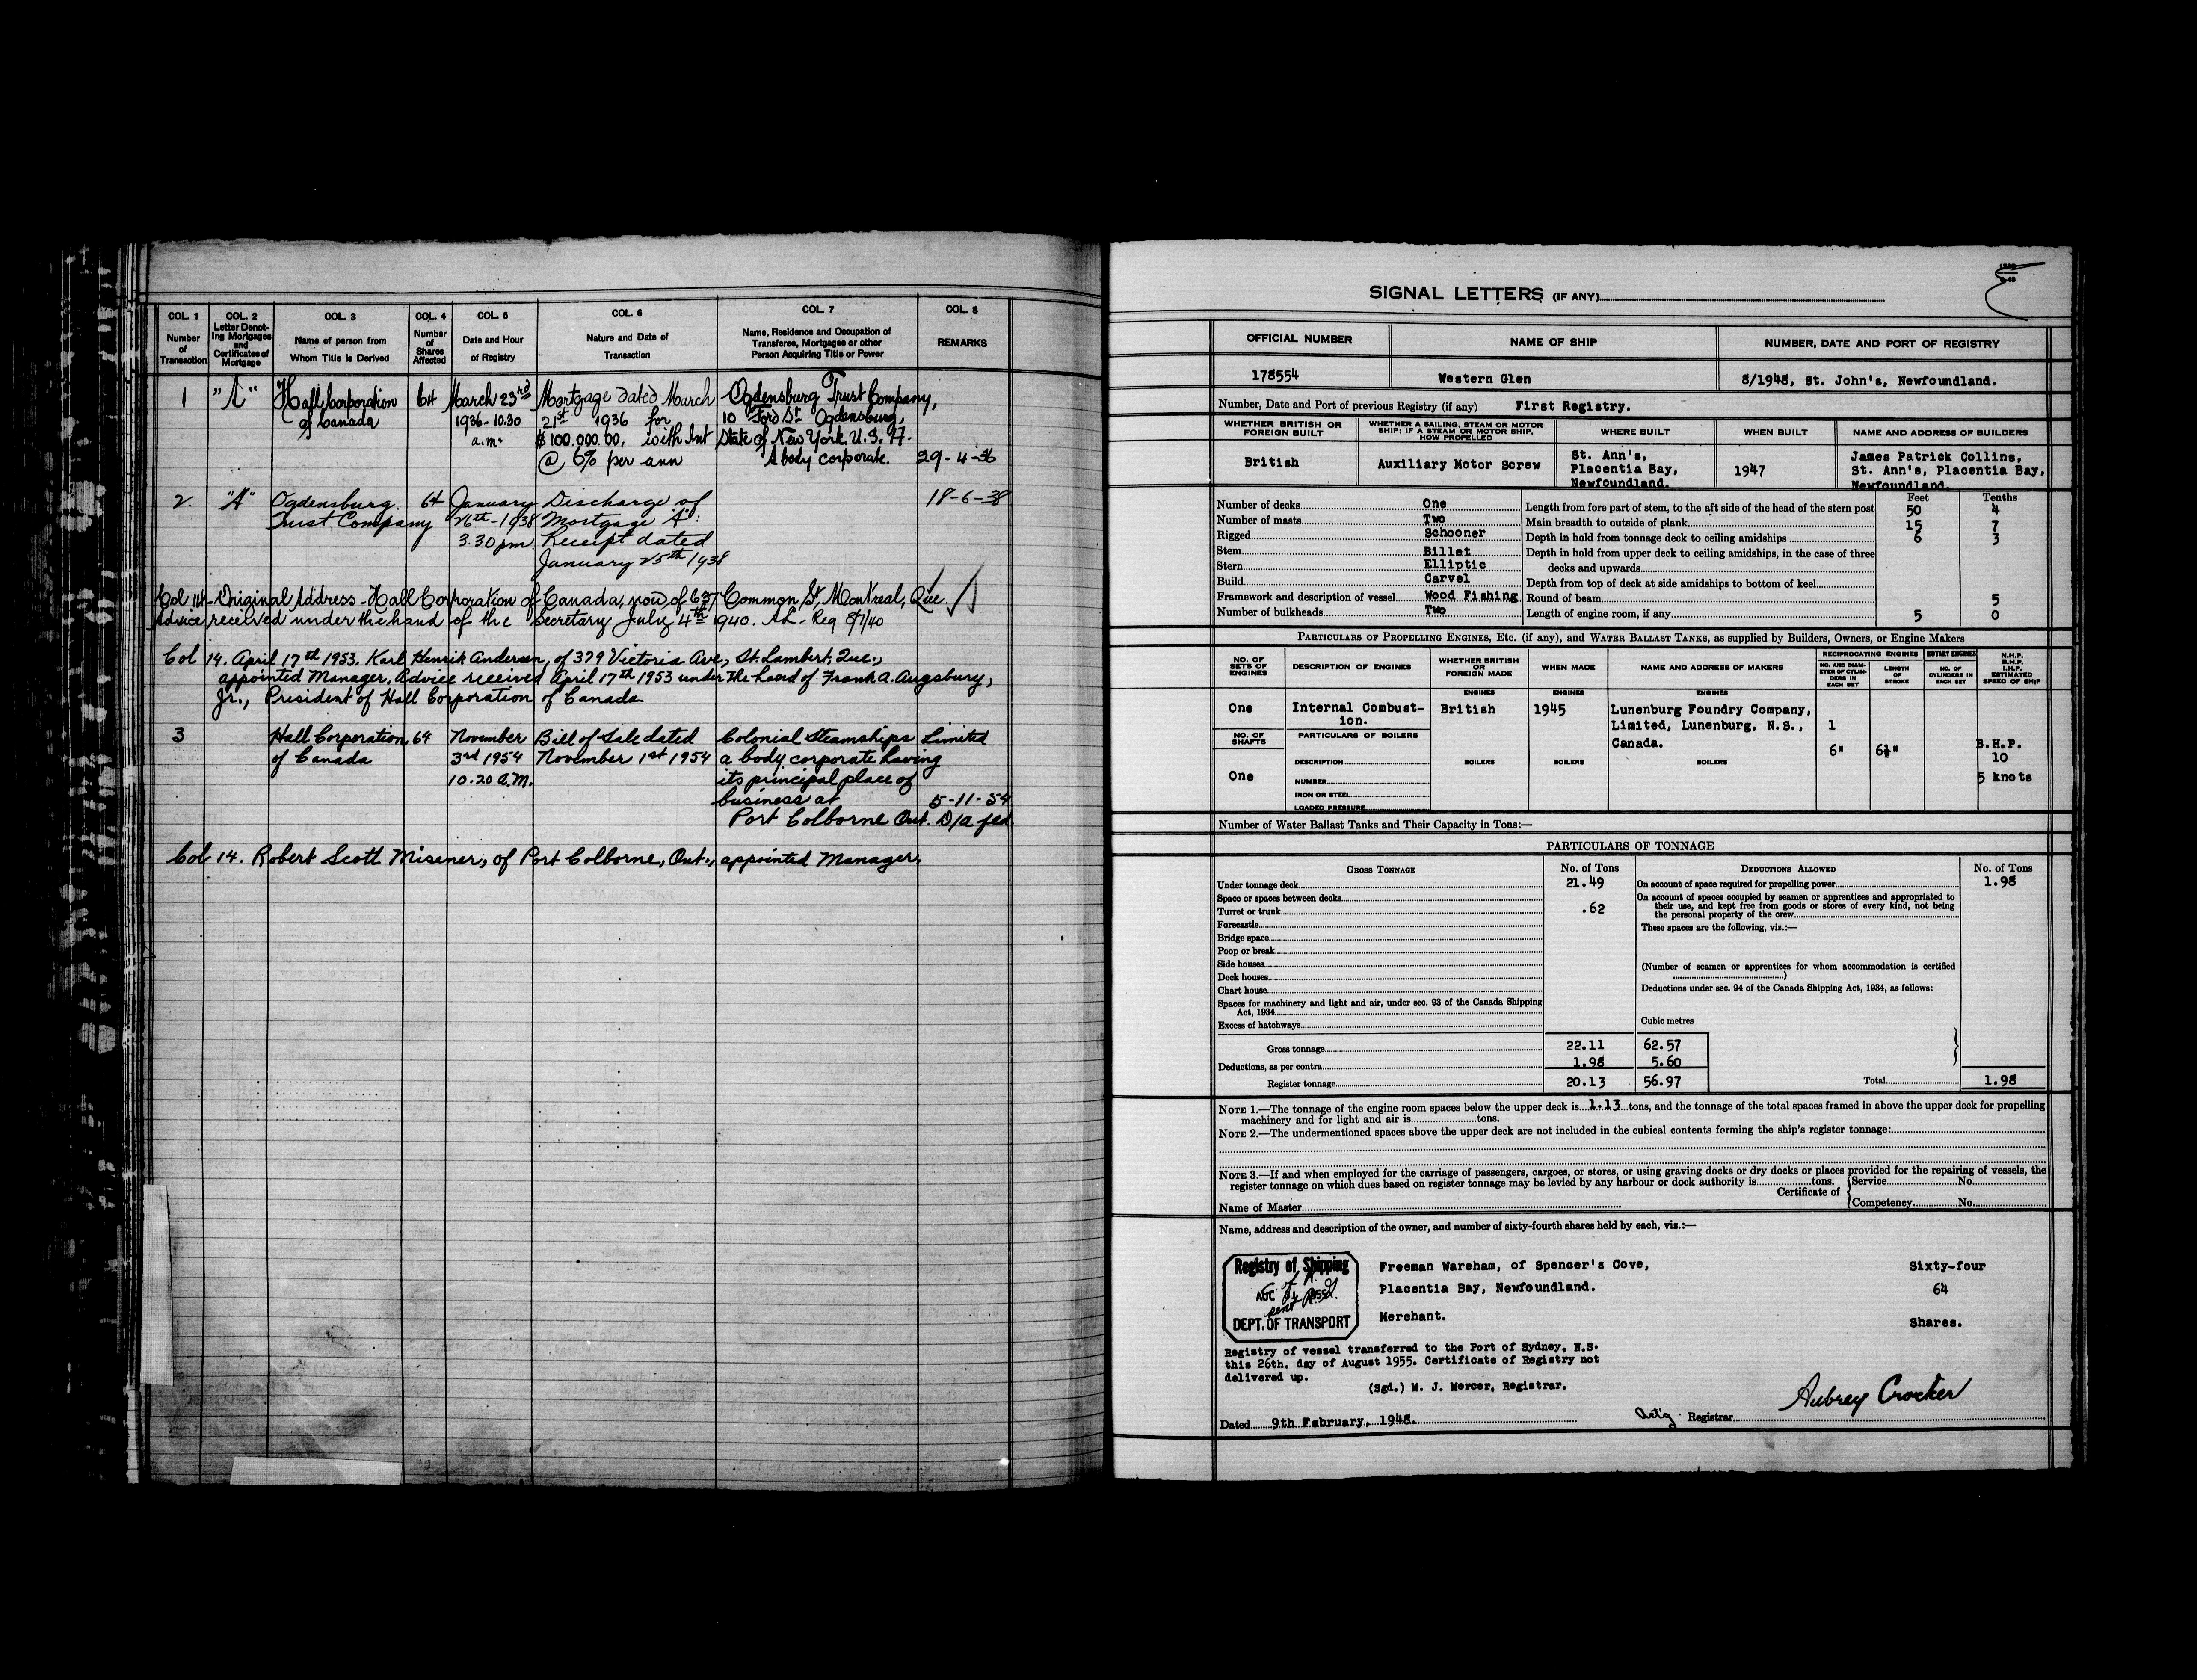 COL. 1 COL. 2 COL. 3 COL. 4 COL. 5 COL. 6 COL. 7 COL. 8
Number of Transaction
Letter Denoting Mortgages and Certificates of Mortgage
Name of person from Whom Title is Derived
Number of Shares Affected
Date and Hour of Registry
Nature and Date of Transaction
Name, Residence and Occupation of Transferee, Mortgages or other Person Acquiring Title or Power
REMARKS
1 "A" Hall Corporation 64 March 23rd Mortgage dated March Ogdensburg Trust Company,
of Canada 1936 - 10.30 21st 1936 for 10 Ford St. Ogdensburg,
a.m. $100,000.00, with Int State of New York, U.S.A.
@ 6% per ann A body corporate. 29-4-36
2. "A" Ogdensburg 64 January Discharge of 18-6-38
Trust Company 26th-1938 Mortgage "A":
3.30 pm Receipt dated
January 25th 1938
Col 14 - Original Address - Hall Corporation of Canada, now of 637 Common St, Montreal, Que.
Advice received under the hand of the Secretary July 4th 1940. AL - Reg 8/7/40
Col 14. April 17th 1953. Karl Henrik Andersen, of 379 Victoria Ave., St. Lambert, Que.,
appointed Manager. Advice received April 17th 1953 under the hand of Frank A. Augsbury,
Jr., President of Hall Corporation of Canada
3 Hall Corporation 64 November Bill of Sale dated Colonial Steamships Limited
of Canada 3rd 1954 November 1st 1954 a body corporate having
10.20 A.M. its principal place of
business at 5-11-54
Port Colborne Ont. D/a fed
Col 14. Robert Scott Misener, of Port Colborne, Ont., appointed Manager.
SIGNAL LETTERS (IF ANY)
OFFICIAL NUMBER NAME OF SHIP NUMBER, DATE AND PORT OF REGISTRY
178554 Western Glen 8/1948, St. John's, Newfoundland.
Number, Date and Port of previous Registry (if any) First Registry.
WHETHER BRITISH OR FOREIGN BUILT
WHETHER A SAILING, STEAM OR MOTOR SHIP; IF A STEAM OR MOTOR SHIP, HOW PROPELLED
WHERE BUILT
WHEN BUILT
NAME AND ADDRESS OF BUILDERS
British
Auxiliary Motor Screw
St. Ann's,
Placentia Bay,
Newfoundland.
1947
James Patrick Collins,
St. Ann's, Placentia Bay,
Newfoundland.
Feet Tenths
Number of decks One
Number of masts Two
Rigged Schooner
Stem Billet
Stern Elliptic
Build Carvel
Framework and description of vessel Wood Fishing
Number of bulkheads Two
Length from fore part of stem, to the aft side of the head of the stern post 50 4
Main breadth to outside of plank 15 7
Depth in hold from tonnage deck to ceiling amidships 6 3
Depth in hold from upper deck to ceiling amidships, in the case of three
decks and upwards
Depth from top of deck at side amidships to bottom of keel
Round of beam 5
Length of engine room, if any 5 0
PARTICULARS OF PROPELLING ENGINES, ETC. (if any), and WATER BALLAST TANKS, as supplied by Builders, Owners, or Engine Makers
NO. OF SETS OF ENGINES
DESCRIPTION OF ENGINES
WHETHER BRITISH OR FOREIGN MADE
WHEN MADE
NAME AND ADDRESS OF MAKERS
RECIPROCATING ENGINES
NO. AND DIAMETER OF CYLINDERS IN EACH SET
LENGTH OF STROKE
ROTARY ENGINES
NO. OF CYLINDERS IN EACH SET
N.H.P.
B.H.P.
I.H.P.
ESTIMATED SPEED OF SHIP
ENGINES ENGINES ENGINES
One Internal Combust- British 1945 Lunenburg Foundry Company,
ion. Limited, Lunenburg, N.S., 1
Canada.
6" 6½" B.H.P.
10
5 knots
NO. OF SHAFTS PARTICULARS OF BOILERS
One
DESCRIPTION BOILERS BOILERS BOILERS
NUMBER
IRON OR STEEL
LOADED PRESSURE
Number of Water Ballast Tanks and Their Capacity in Tons:—
PARTICULARS OF TONNAGE
GROSS TONNAGE No. of Tons DEDUCTIONS ALLOWED No. of Tons
Under tonnage deck 21.49
Space or spaces between decks
Turret or trunk .62
Forecastle
Bridge space
Poop or break
Side houses
Deck houses
Chart house
Spaces for machinery and light and air, under sec. 93 of the Canada Shipping
Act, 1934
Excess of hatchways
On account of space required for propelling power 1.98
On account of spaces occupied by seamen or apprentices and appropriated to
their use, and kept free from goods or stores of every kind, not being
the personal property of the crew
These spaces are the following, viz.:—
(Number of seamen or apprentices for whom accommodation is certified
)
Deductions under sec. 94 of the Canada Shipping Act, 1934, as follows:
Cubic metres
Gross tonnage 22.11 62.57
Deductions, as per contra 1.98 5.60
Register tonnage 20.13 56.97 Total 1.98
NOTE 1.—The tonnage of the engine room spaces below the upper deck is 1.13 tons, and the tonnage of the total spaces framed in above the upper deck for propelling
machinery and for light and air is tons.
NOTE 2.—The undermentioned spaces above the upper deck are not included in the cubical contents forming the ship's register tonnage:
NOTE 3.—If and when employed for the carriage of passengers, cargoes, or stores, or using graving docks or dry docks or places provided for the repairing of vessels, the
register tonnage on which dues based on register tonnage may be levied by any harbour or dock authority is tons.
Certificate of Service No.
Competency No.
Name of Master
Name, address and description of the owner, and number of sixty-fourth shares held by each, viz.:—
Registry of Shipping
C. of R.
sent
DEPT. OF TRANSPORT
Freeman Wareham, of Spencer's Cove, Sixty-four
Placentia Bay, Newfoundland. 64
Merchant. Shares.
Registry of vessel transferred to the Port of Sydney, N.S.
this 26th. day of August 1955. Certificate of Registry not
delivered up.
(Sgd.) M. J. Mercer, Registrar.
Dated 9th February, 1948. Act'g Registrar Aubrey Crocker